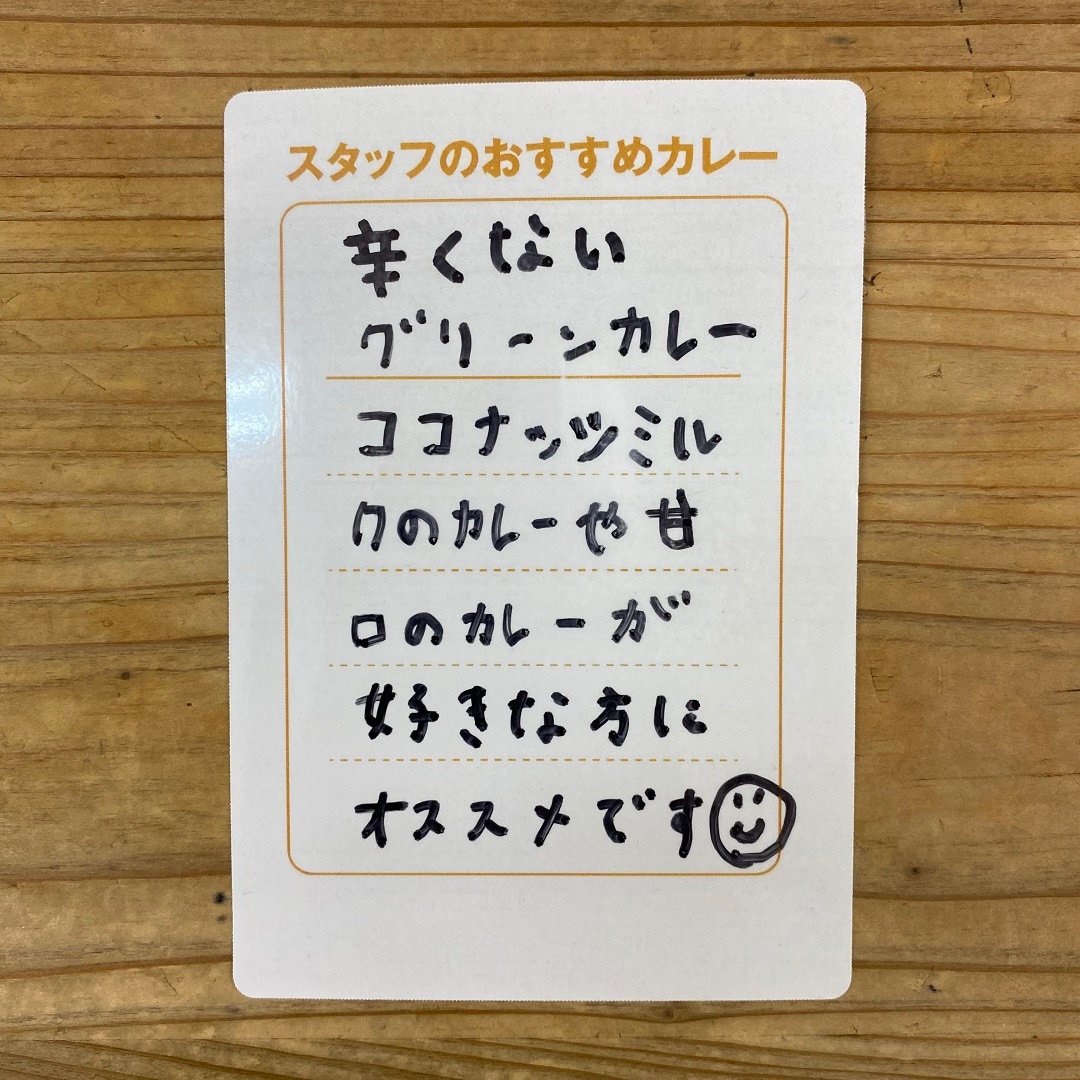 スタッフのおすすめカレー
辛くない
グリーンカレー
ココナッツミル
クのカレーや甘
口のカレーが
好きな方に
オススメです